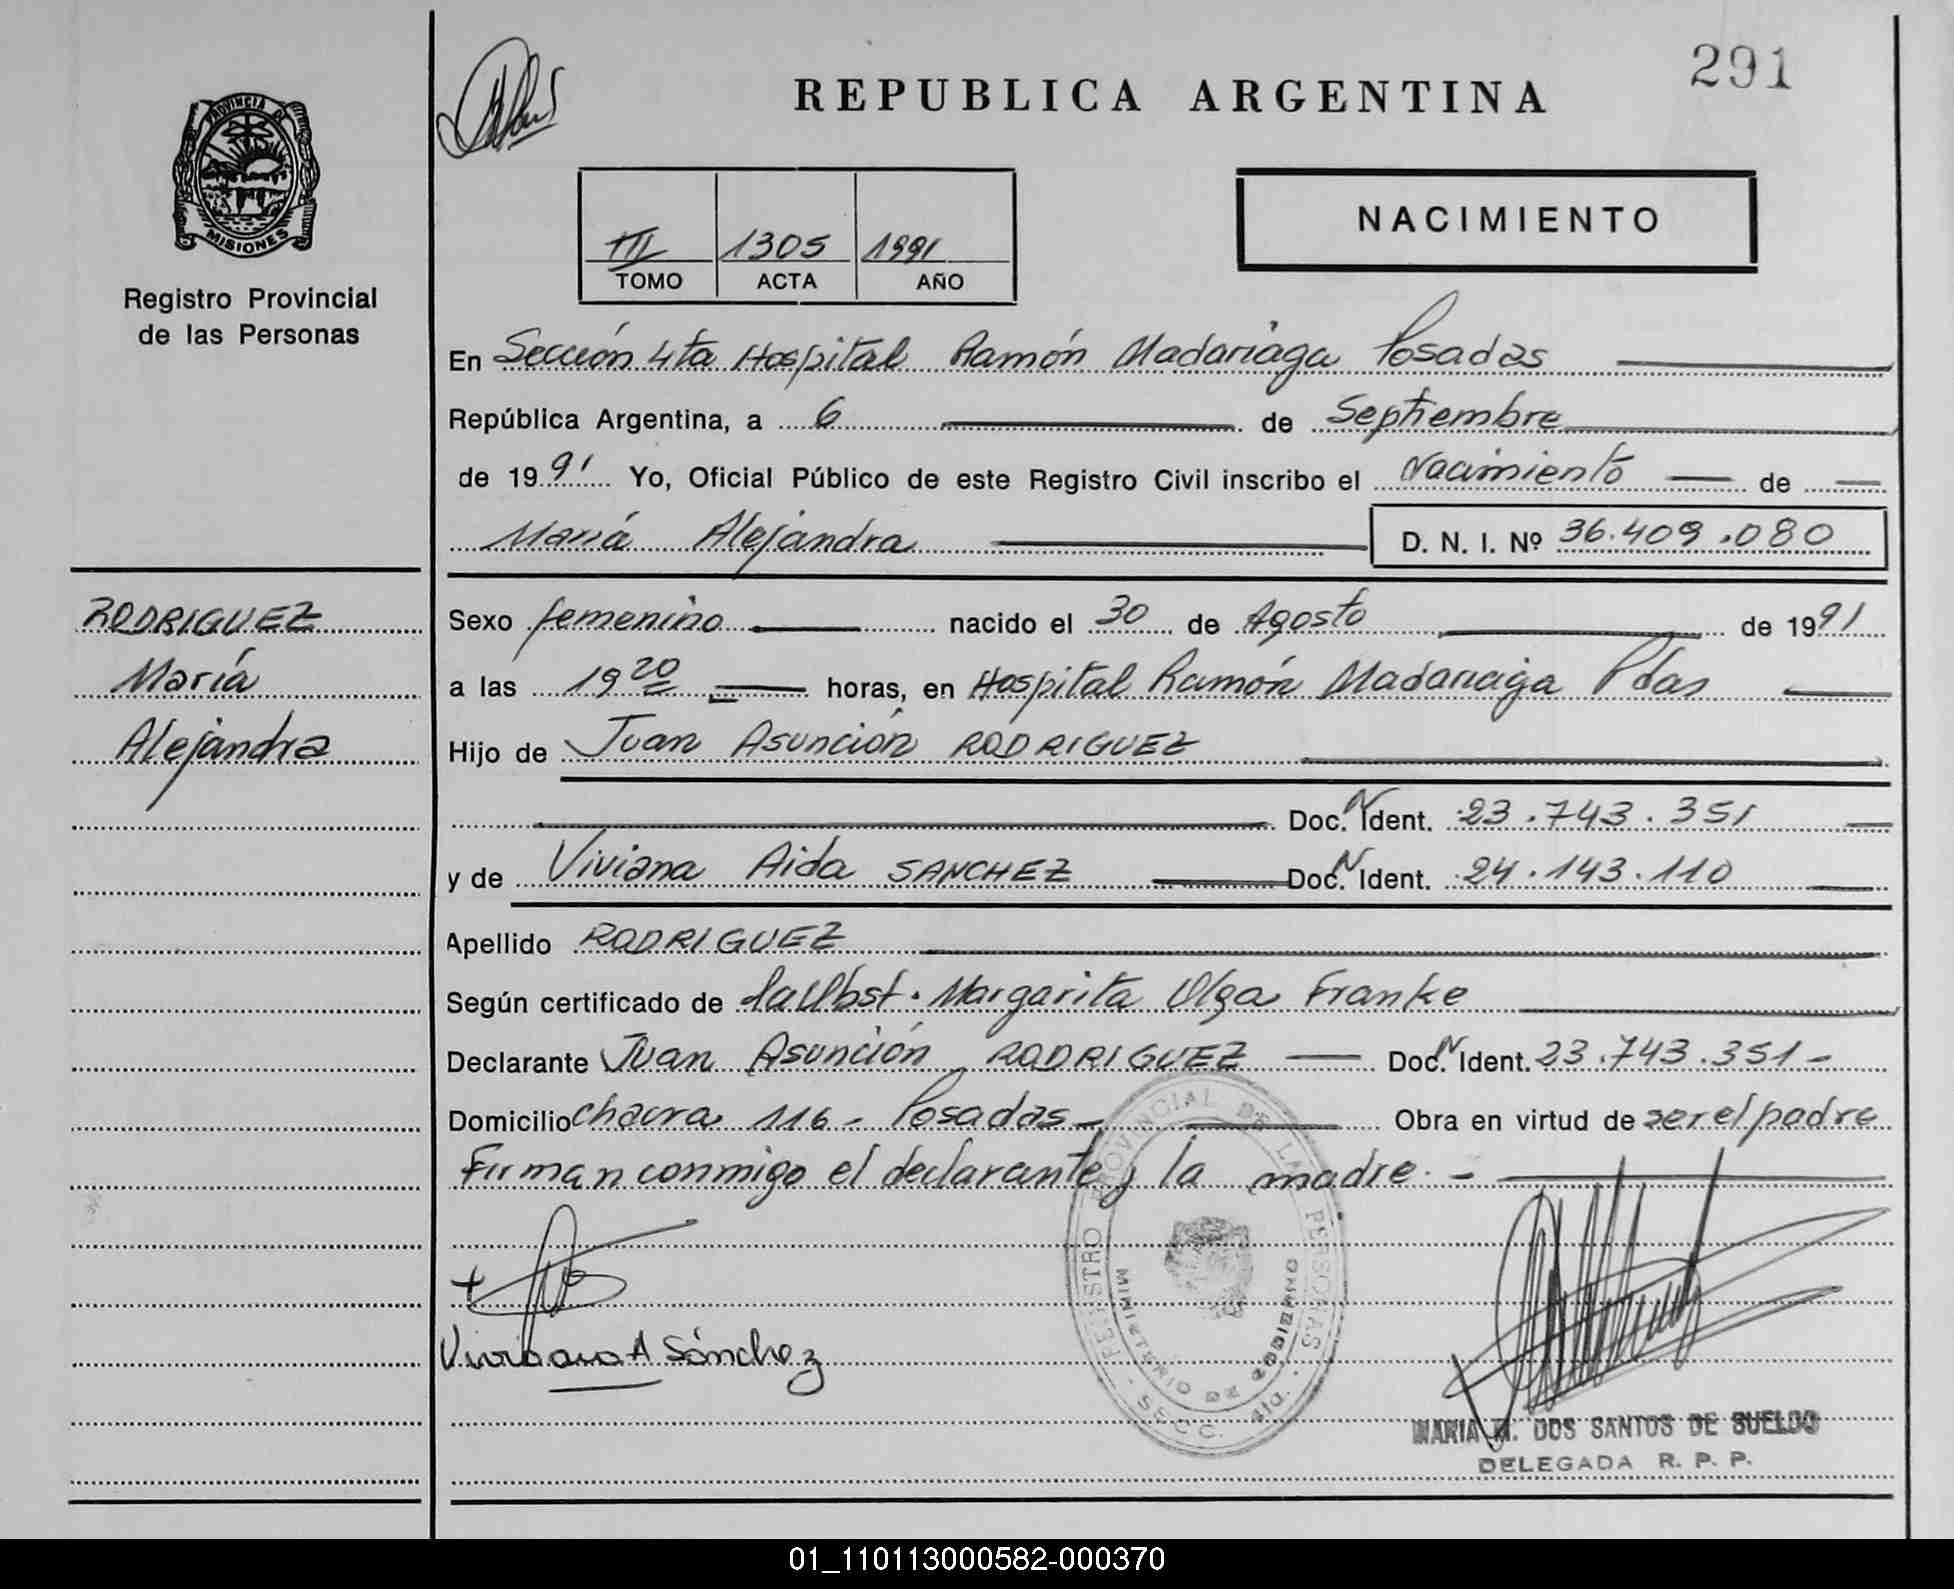 291
REPUBLICA ARGENTINA
PROVINCIA DE
MISIONES
Registro Provincial
de las Personas
III 1305 1991
TOMO ACTA AÑO
NACIMIENTO
En Sección 4ta Hospital Ramón Madariaga Posadas
República Argentina, a 6 de Septiembre
de 1991 Yo, Oficial Público de este Registro Civil inscribo el Nacimiento de
María Alejandra D. N. I. Nº 36.409.080
RODRIGUEZ
María
Alejandra
Sexo femenino nacido el 30 de Agosto de 1991
a las 19 20 horas, en Hospital Ramón Madariaga Pdas
Hijo de Juan Asunción RODRIGUEZ
Doc. N Ident. 23.743.351
y de Viviana Aida SANCHEZ Doc. N Ident. 24.143.110
Apellido RODRIGUEZ
Según certificado de la Obst. Margarita Olga Franke
Declarante Juan Asunción RODRIGUEZ Doc. N Ident. 23.743.351-
Domicilio chacra 116 - Posadas - Obra en virtud de ser el padre
Firman conmigo el declarante y la madre. -
Viviana A Sánchez
REGISTRO PROVINCIAL DE LAS PERSONAS
MINISTERIO DE GOBIERNO
SECC. 4ta.
MARIA M. DOS SANTOS DE SUELDO
DELEGADA R. P. P.
01_110113000582-000370